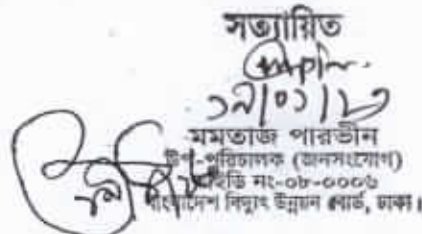 সত্যায়িত
মমতাজ পারভীন
উপ-পরিচালক (জনসংযোগ)
আইডি নং-০৮-০০০৬
বাংলাদেশ বিদ্যুৎ উন্নয়ন বোর্ড, ঢাকা।